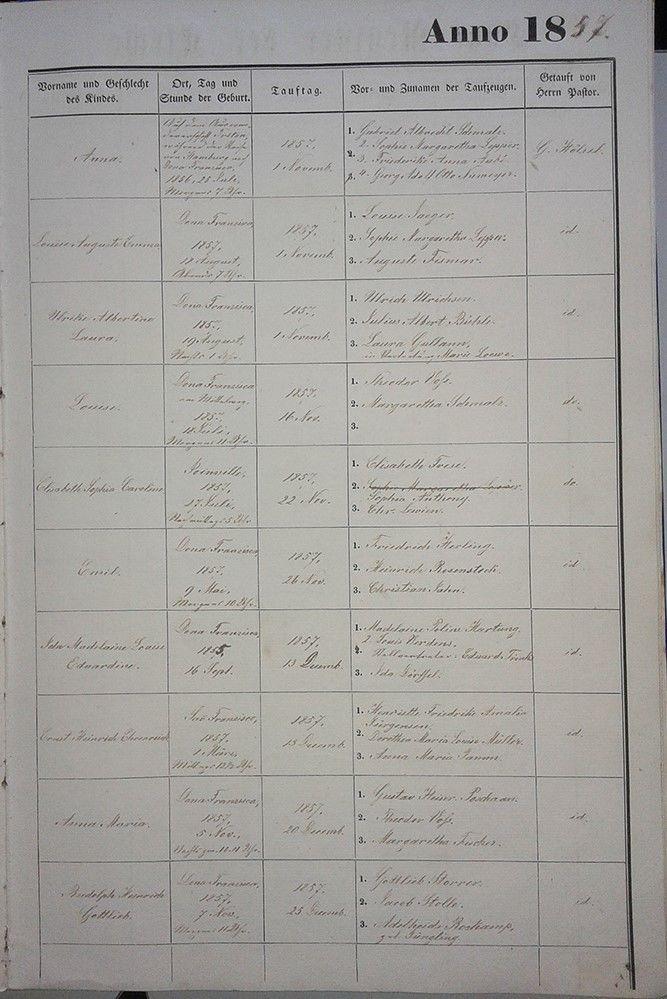 Anno 1857.
Vorname und Geschlecht
des Kindes.
Ort, Tag und
Stunde der Geburt.
Tauftag.
Vor- und Zunamen der Taufzeugen.
Getauft von
Herrn Pastor.
Anna.
1856, 25 Juli,
Morgens 7 Uhr.
1857.
1 Novemb.
1. Gabriel Albrecht Schmalz.
2. Sophie Margaretha Lepper.
3. Friederike Anna
4. Georg Adolf Otto Niemeyer.
G. Hölzel.
Louise Auguste Emma
Dona Francisca
1857.
18 August,
Abends 7 Uhr.
1857.
1 Novemb.
1. Louise Jaeger.
2. Sophie Margaretha Lepper.
3. Auguste Fismar.
id.
Ulrike Albertine
Laura.
Dona Francisca,
1857,
19 August,
Nachts 1 Uhr.
1857.
1 Novemb.
1. Ulrich Ulrichsen.
2. Julius Albert
3. Laura
in Vertretung Marie Loewe.
id.
Louise.
Dona Francisca
1857.
18 Juli,
Morgens 11 Uhr.
1857.
16 Nov.
1. Theodor Voss.
2. Margaretha Schmalz.
3.
do.
Elisabeth Sophia Caroline
Joinville,
1857,
17 Juli,
Nachmittags 5 Uhr.
1857.
22 Nov.
1. Elisabeth Frese.
2. Sophie Margaretha
Sophia Anthony.
3. Chr. Lewien.
do.
Emil.
Dona Francisca,
1857.
9 Mai,
Morgens 10 Uhr.
1857.
26 Nov.
1. Friedrich Herling.
2. Heinrich Rosenstock.
3. Christian Jahn.
id.
Ida Madelaine Louise
Eduardine.
Dona Francisca
1855,
16 Sept.
1857.
13 Decemb.
1. Madelaine Poline Hartung.
2. Louis
Stellvertreter: Eduard Trinks
3. Ida Görssel.
id.
Ernst Heinrich
Sao Francisco,
1857.
1 März,
Mittags 12½ Uhr.
1857.
13 Decemb.
1. Henriette Friedrike Amalie
Jürgensen.
2. Dorothea Maria Louise Müller.
3. Anna Maria
id.
Anna Maria.
Dona Francisca,
1857,
5 Nov.,
Nachts zw. 10-11 Uhr.
1857.
20 Decemb.
1. Gustav Heinr. Poschaan.
2. Theodor Voss.
3. Margaretha Fischer.
id.
Rudolph Heinrich
Gottlieb.
Dona Francisca,
1857.
7 Nov.,
Morgens 11 Uhr.
1857.
25 Decemb.
1. Gottlieb Storrer.
2. Jacob Stolle.
3. Adelheide Roskamp,
geb. Jüngling.
id.